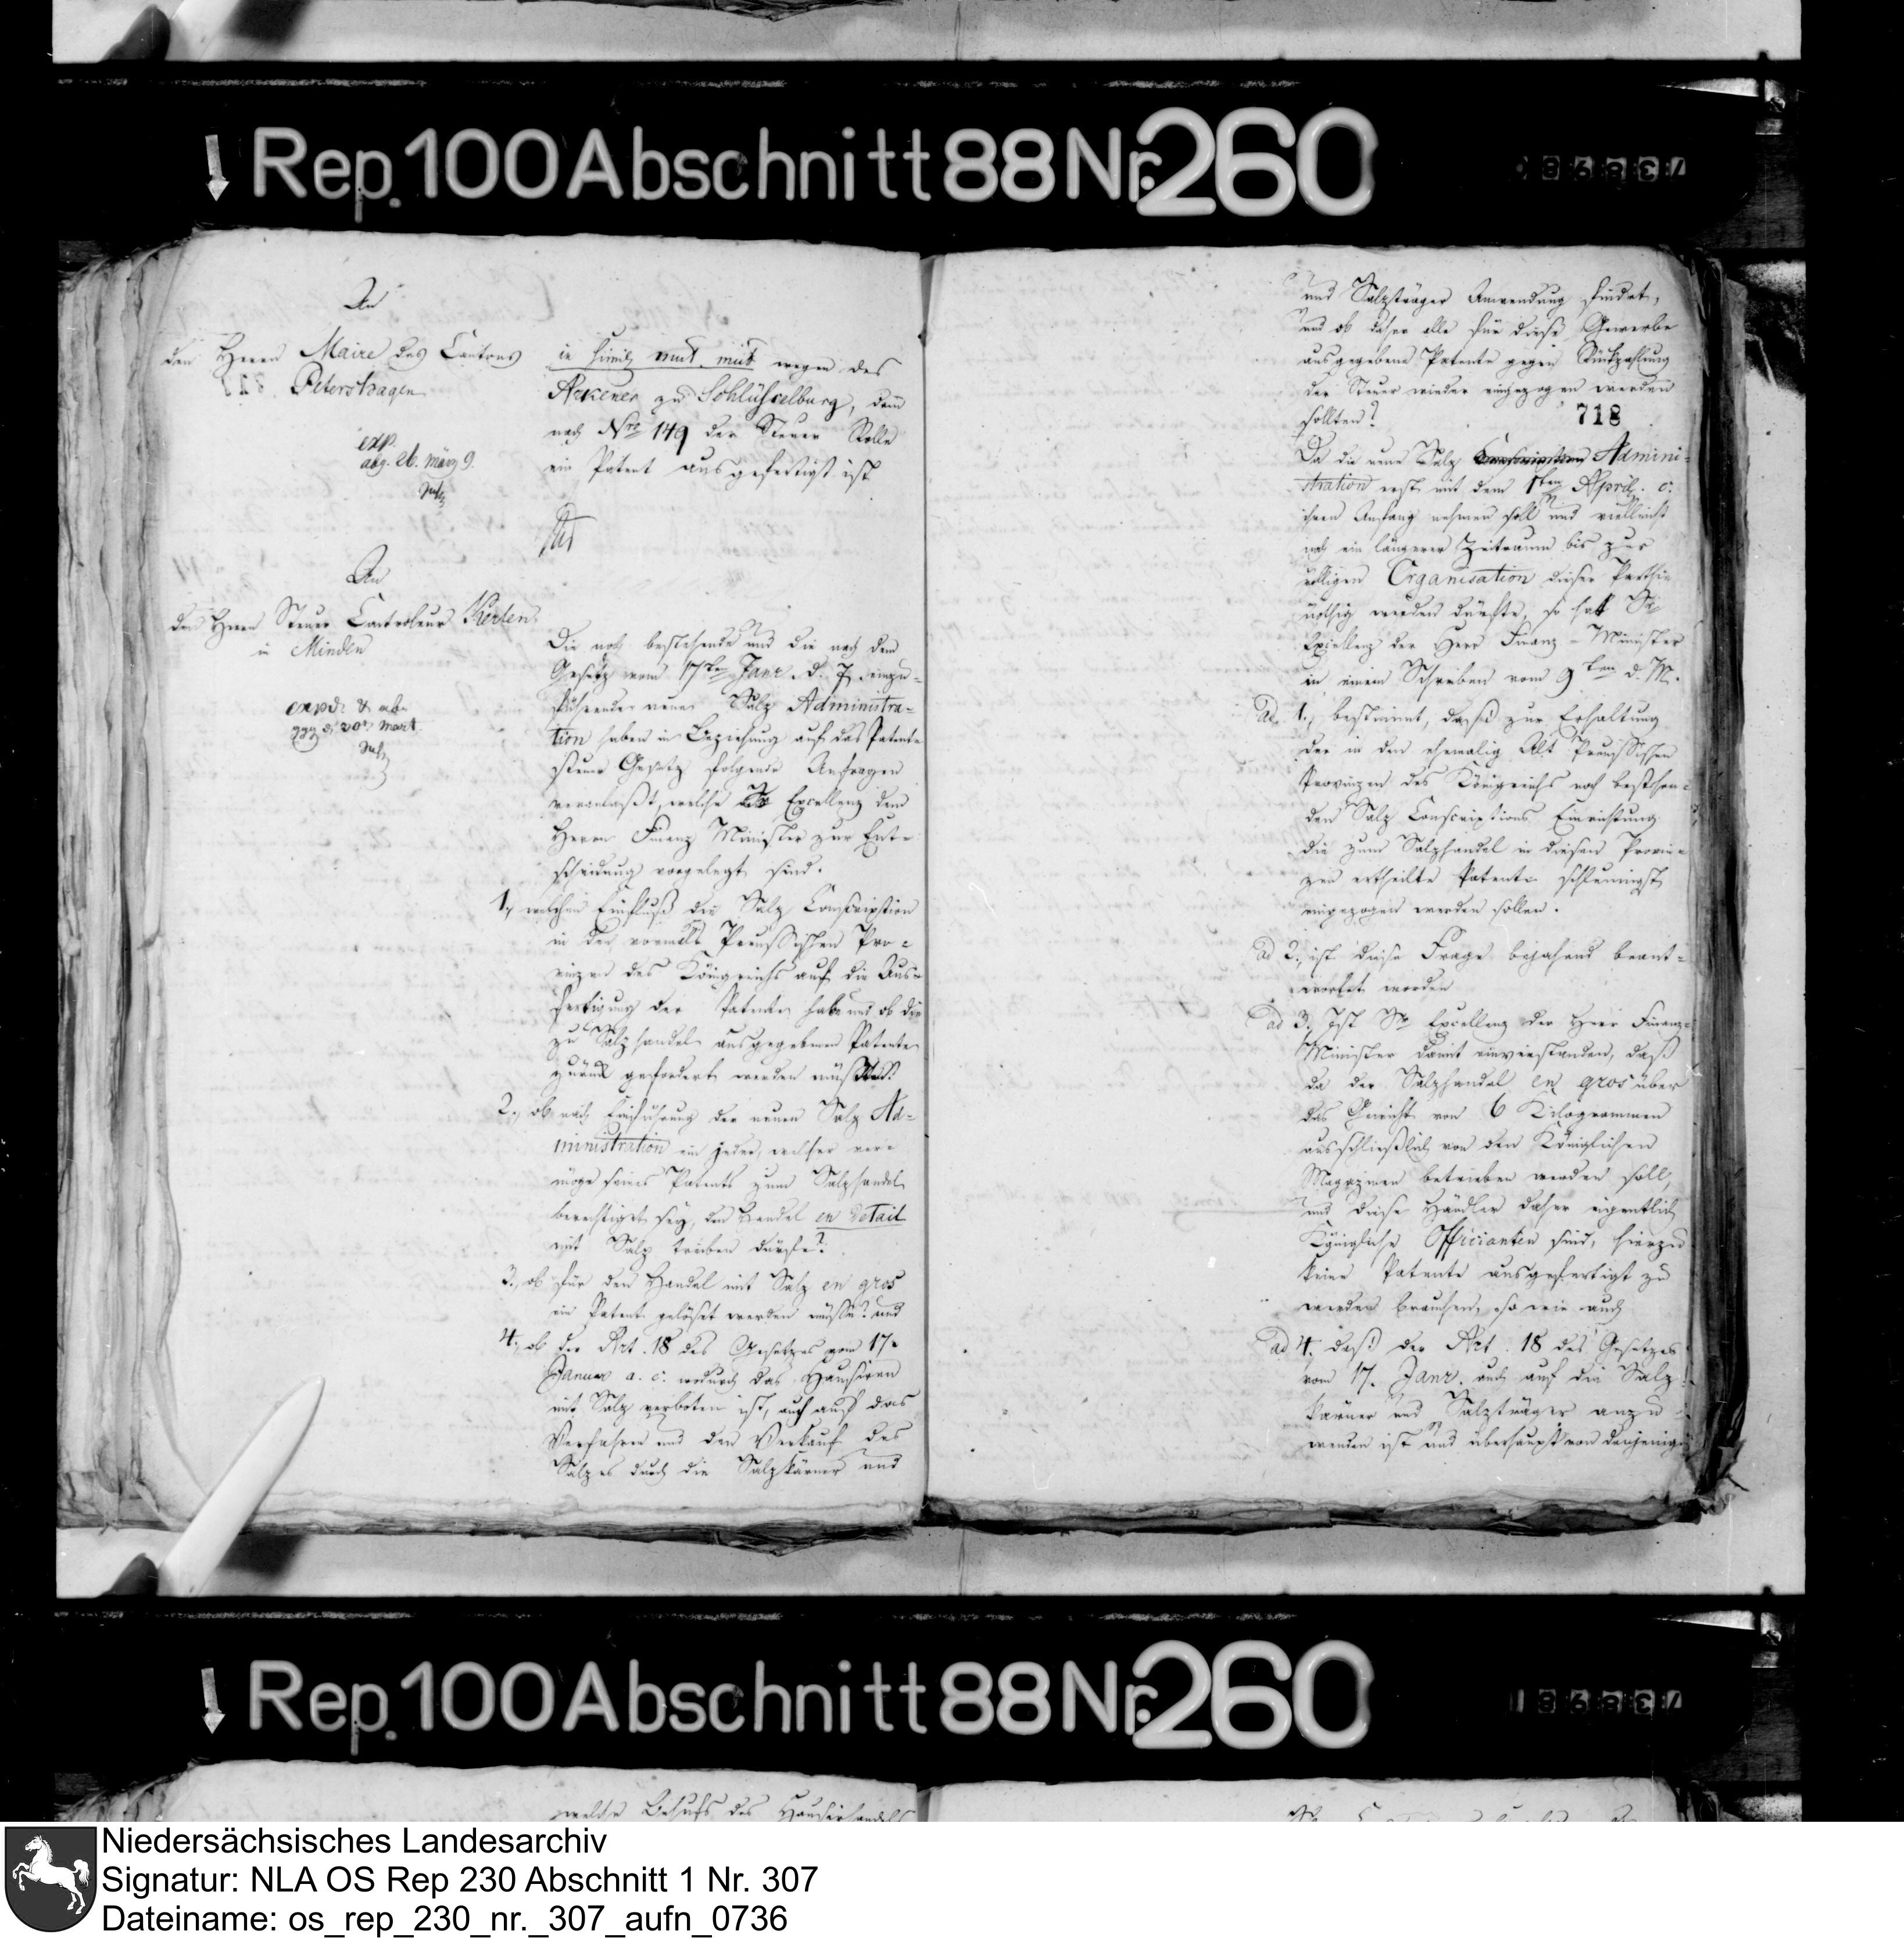 Rep. 100 Abschnitt 88 Nr. 260
An
den Herrn Maire des Cantons
Petershagen
exp.
abg. 26. März 9.
in simili mut. mut. wegen des
Arkener zu Schlüsselburg, dem
nach Nro 149 der Steuer Rolle
ein Patent ausgefertigt ist
An
den Herrn Steuer Controleur Kerten
in Minden
expd. & abg.
20t Mart.
Die noch bestehende und die nach dem
Gesetz vom 17ten Janr. d. J. einzu-
führende neue Salz Administra-
tion haben in Beziehung auf das Patent-
steuer Gesetz folgende Anfragen
veranlaßt, welche Sr Excellenz dem
Herrn Finanz Minister zur Ent-
scheidung vorgelegt sind.
1., welchen Einfluß die Salz Conscription
in den vormals Preussischen Pro-
vinzen des Königreichs auf die Aus-
fertigung der Patente habe und ob die
zu Salzhandel ausgegebenen Patente
zurück gefordert werden müßten?
2., ob nach Einführung der neuen Salz Ad-
ministration ein jeder, welcher ver-
möge seines Patents zum Salzhandel
berechtiget sey, den Handel en detail
mit Salz treiben dürfe?
3., ob für den Handel mit Salz en gros
ein Patent gelöset werden müsse? und
4., ob der Art. 18 des Gesetzes vom 17.
Januar a. c. wodurch das Hausiren
mit Salz verboten ist, auch auf das
Verfahren und den Verkauf des
Salzes durch die Salzkärner und
und Salzträger Anwendung findet,
und ob daher alle für diese Gewerbe
ausgegebene Patente gegen Rückzahlung
der Steuer wieder eingezogen werden
sollten?
718
Da die neue Salz Admini-
stration erst mit dem 1ten April c.
ihren Anfang nehmen soll und vielleicht
noch ein längerer Zeitraum bis zur
völligen Organisation dieser Parthie
nöthig werden dürfte, so hat Se
Excellenz der Herr Finanz-Minister
in einem Schreiben vom 9ten d. M.
ad 1., bestimmt, daß zur Erhaltung
der in den ehemalig Alt Preussischen
Provinzen des Königreichs noch bestehen-
den Salz Conscriptions Einrichtung
die zum Salzhandel in diesen Provin-
zen ertheilte Patente schleunigst
eingezogen werden sollen.
ad 2., ist diese Frage bejahend beant-
wortet worden
ad 3. Ist Se Excellenz der Herr Finanz-
Minister damit einverstanden, daß
da der Salzhandel en gros über
das Gewicht von 6 Kilogrammen
ausschließlich von den Königlichen
Magazinen betrieben werden soll,
und diese Händler daher eigentlich
Königliche Officianten sind, hierzu
keine Patente ausgefertigt zu
werden brauchen, so wie auch
ad 4. daß der Art. 18 des Gesetzes
vom 17. Janr. auch auf die Salz-
kärner und Salzträger anzu-
wenden ist und überhaupt von denjenigen
Rep. 100 Abschnitt 88 Nr. 260
welche Behufs des Hausirhandels
Niedersächsisches Landesarchiv
Signatur: NLA OS Rep 230 Abschnitt 1 Nr. 307
Dateiname: os_rep_230_nr._307_aufn_0736